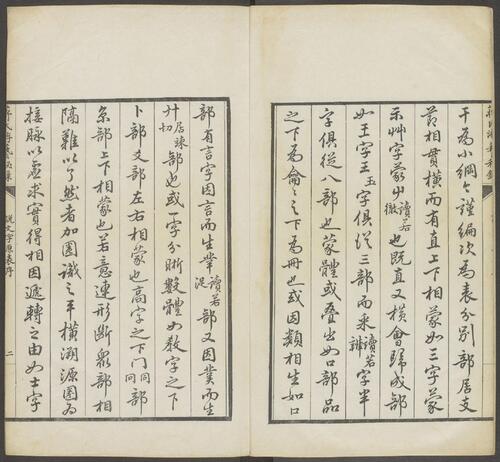 干為小綱々謹編次為表分别部居支
節相貫横而有直上下相蒙如三字蒙
示艸字蒙屮讀若徹也既直又横會歸成部
如王字王玉字俱从三部而釆讀若辨字半
字俱從八部也蒙體或叠出如口部品
之下為侖々之下為冊也或因類相生如口
部有言字因言而生丵讀若浞部又因丵而生
廾居竦切部也或一字分晰數體如教字之下
卜部爻部左右相蒙也高字之下冂同冋部
京部上下相蒙也若意連形斷衆部相
隔難以了然者加圈識之平横溯源圈為
接脉以虚求實得相因遞轉之由如士字
説文字原表序
二